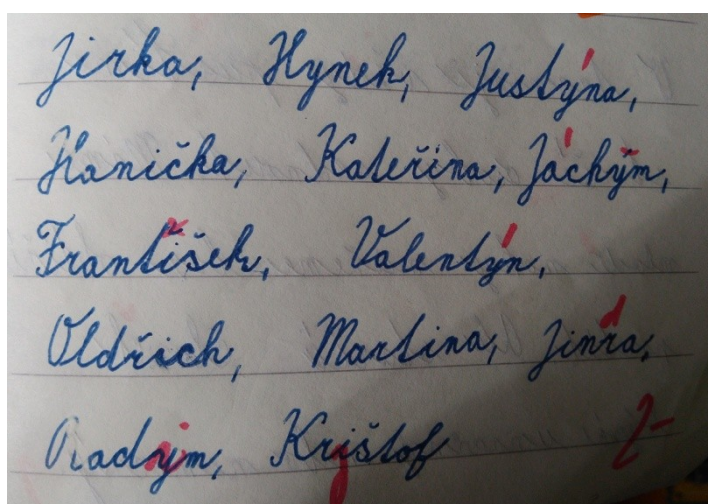 Jirka, Hynek, Justýna,
Hanička, Kateřina, Jáchým,
František, Valentýn,
Oldřich, Martina, Jinra,
Radym, Krištof 2-